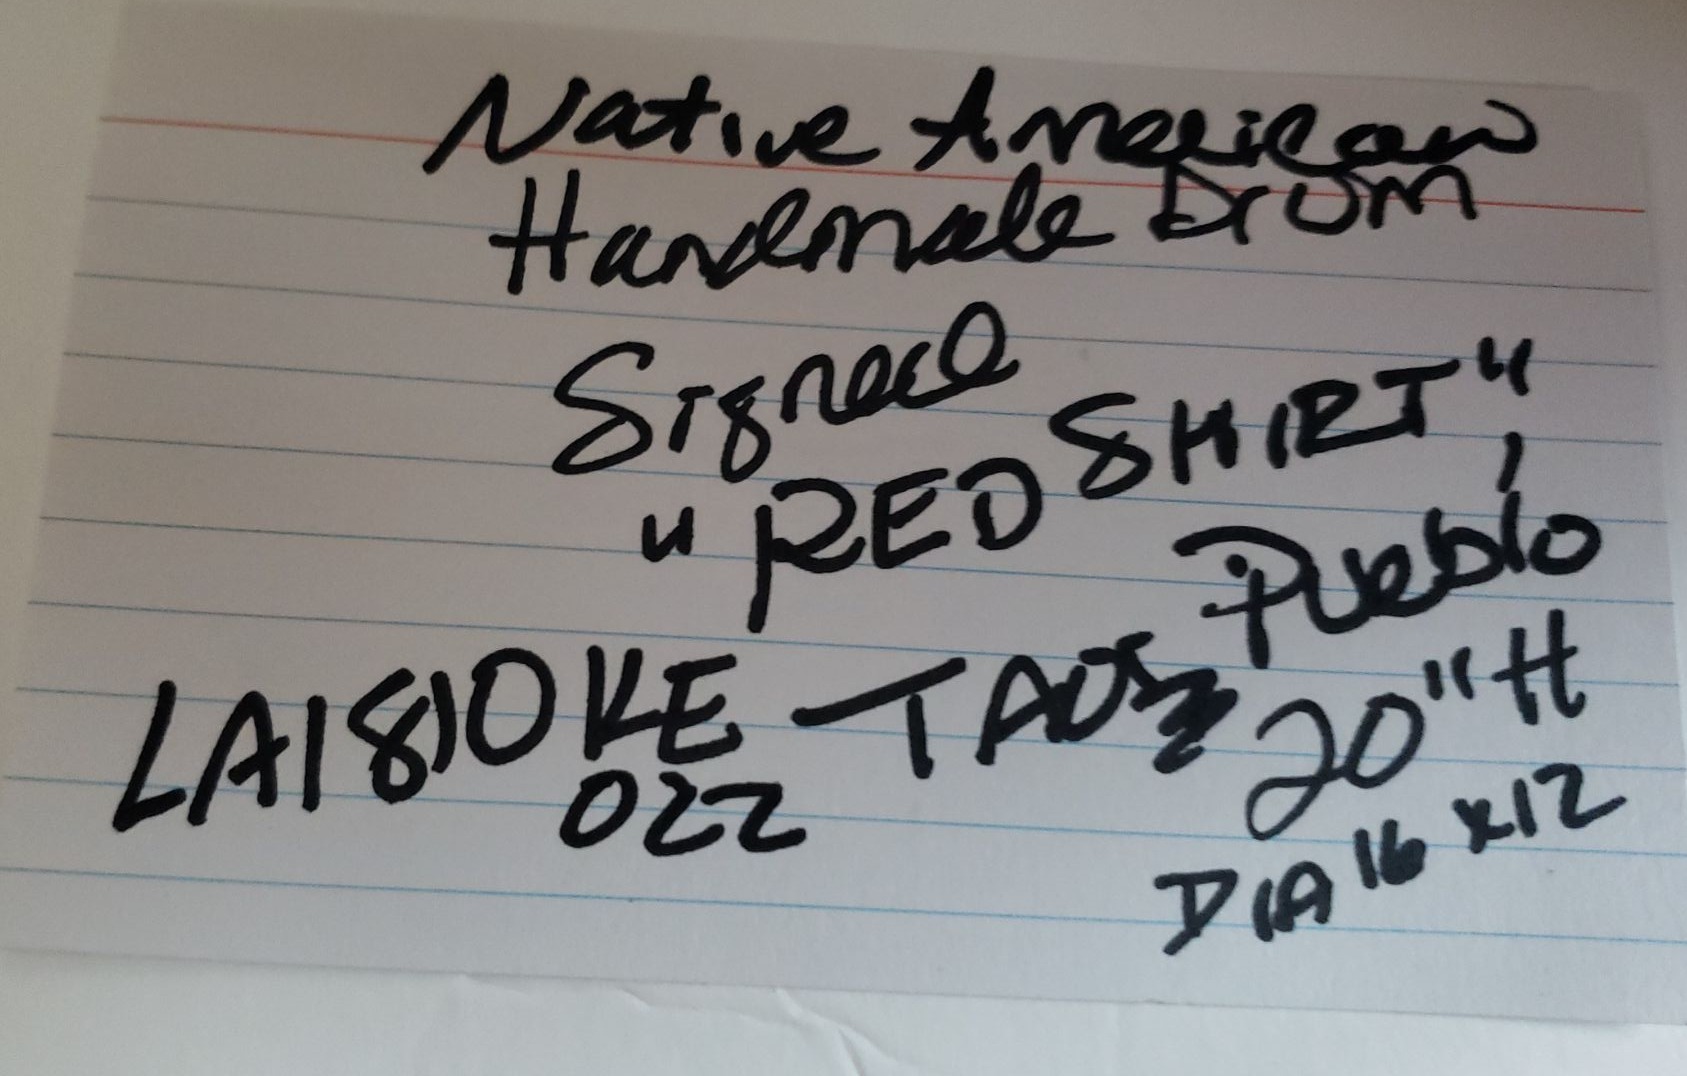 Native American
Handmade Drum
Signed
"RED SHIRT",
LA1810KE TAOS Pueblo
022
20"H
DIA 16 x12